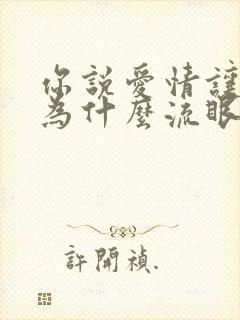 你說愛情讓
為什麼流眼
許開禎.